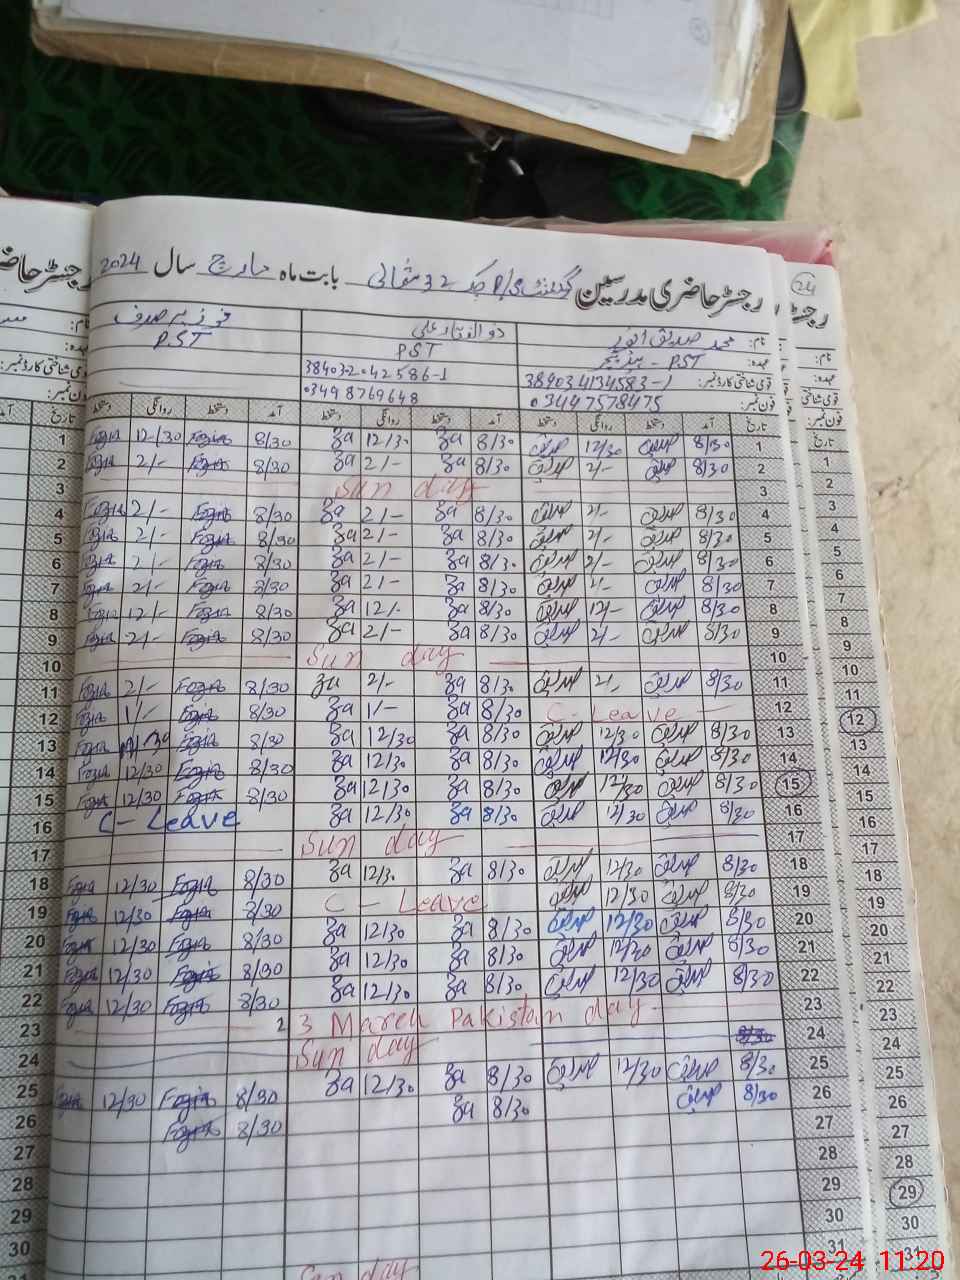 24
رجسٹر حاضری مدرسین گورنمنٹ P/S چک 32 شمالی بابت ماہ مارچ سال 2024
نام: محمد صدیق انور ذوالفقار علی فوزیہ صدف
عہدہ: ہیڈ ٹیچر - PST PST PST
قومی شناختی کارڈ نمبر: 38403-4134583-1 384032042586-1
فون نمبر: 03447578475 03498769648
تاریخ آمد دستخط روانگی دستخط آمد دستخط روانگی دستخط آمد دستخط روانگی دستخط تاریخ
1 8/30 صدیق 12/30 صدیق 8/30 za 12/30 za 8/30 Fozia 12/30 Fozia 1
2 8/30 صدیق 2/- صدیق 8/30 za 2/- za 8/30 Fozia 2/- Fozia 2
3 Sunday 3
4 8/30 صدیق 2/- صدیق 8/30 za 2/- za 8/30 Fozia 2/- Fozia 4
5 8/30 صدیق 2/- صدیق 8/30 za 2/- za 8/30 Fozia 2/- Fozia 5
6 8/30 صدیق 2/- صدیق 8/30 za 2/- za 8/30 Fozia 2/- Fozia 6
7 8/30 صدیق 2/- صدیق 8/30 za 2/- za 8/30 Fozia 2/- Fozia 7
8 8/30 صدیق 12/- صدیق 8/30 za 12/- za 8/30 Fozia 12/- Fozia 8
9 8/30 صدیق 2/- صدیق 8/30 za 2/- za 8/30 Fozia 2/- Fozia 9
10 Sunday 10
11 8/30 صدیق 2/- صدیق 8/30 za 2/- za 8/30 Fozia 2/- Fozia 11
12 C-Leave 8/30 za 1/- za 8/30 Fozia 1/- Fozia 12
13 8/30 صدیق 12/30 صدیق 8/30 za 12/30 za 8/30 Fozia Fozia 13
14 8/30 صدیق 12/30 صدیق 8/30 za 12/30 za 8/30 Fozia 12/30 Fozia 14
15 8/30 صدیق 12/30 صدیق 8/30 za 12/30 za 8/30 Fozia 12/30 Fozia 15
16 8/30 صدیق 12/30 صدیق 8/30 za 12/30 za C-Leave 16
17 Sunday 17
18 8/30 صدیق 12/30 صدیق 8/30 za 12/30 za 8/30 Fozia 12/30 Fozia 18
19 8/30 صدیق 12/30 صدیق C-Leave 8/30 Fozia 12/30 Fozia 19
20 8/30 صدیق 12/30 صدیق 8/30 za 12/30 za 8/30 Fozia 12/30 Fozia 20
21 8/30 صدیق 12/30 صدیق 8/30 za 12/30 za 8/30 Fozia 12/30 Fozia 21
22 8/30 صدیق 12/30 صدیق 8/30 za 12/30 za 8/30 Fozia 12/30 Fozia 22
23 23 March Pakistan day 23
24 Sunday 24
25 8/30 صدیق 12/30 صدیق 8/30 za 12/30 za 8/30 Fozia 12/30 25
26 8/30 صدیق 8/30 za 8/30 Fozia 26
27 27
28 28
29 29
30 30
Sunday
26-03-24 11:20